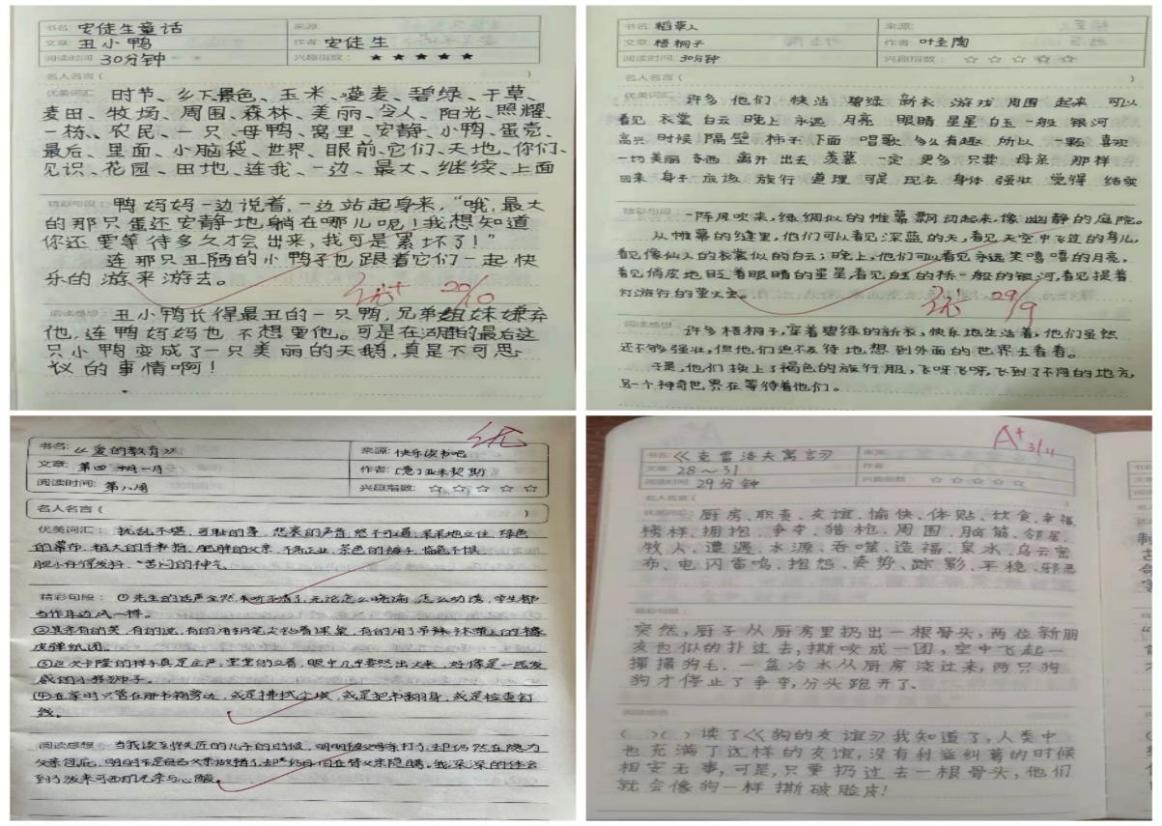 书名: 安徒生童话 来源:
文章: 丑小鸭 作者: 安徒生
阅读时间: 30分钟 兴趣指数: ★ ★ ★ ★ ★
名人名言( )
优美词汇: 时节、乡下景色、玉米、燕麦、碧绿、干草、
麦田、牧场、周围、森林、美丽、令人、阳光、照耀、
一栋、农民、一只、母鸭、窝里、安静、小鸭、蛋壳、
最后、里面、小脑袋、世界、眼前、它们、天地、你们、
见识、花园、田地、连我、一边、最大、继续、上面
精彩句段: 鸭妈妈一边说着,一边站起身来,“哦,最大
的那只蛋还安静地躺在哪儿呢!我想知道
你还要等待多久才会出来,我可是累坏了!”
连那只丑陋的小鸭子也跟着它们一起快
乐的游来游去。
优+ 20/10
阅读感想: 丑小鸭长得最丑的一只鸭,兄弟姐妹嫌弃
他,连鸭妈妈也不想要他。可是在湖的最后这
只小鸭变成了一只美丽的天鹅,真是不可思
议的事情啊!
书名: 稻草人 来源:
文章: 梧桐子 作者: 叶圣陶
阅读时间: 30分钟 兴趣指数: ☆ ☆ ☆ ☆ ☆
名人名言( )
优美词汇: 许多 他们 快活 碧绿 新衣 游戏 周围 起来 可以
看见 衣裳 白云 晚上 永远 月亮 眼睛 星星 白玉 一般 银河
高兴 时候 隔壁 柿子 下面 唱歌 多么有趣 所以 一颗 喜欢
一切美丽 东西 离开 出去 羡慕 一定 更多 只要 母亲 那样
回来 身子 应该 旅行 道理 可是 现在 身体 强壮 觉得 结实
精彩句段: 一阵风吹来,绿绸似的帷幕飘动起来,像幽静的庭院。
从帷幕的缝里,他们可以看见深蓝的天,看见天空中飞过的鸟儿,
看见像仙人的衣裳似的白云;晚上,他们可以看见永远笑嘻嘻的月亮,
看见俏皮地眨着眼睛的星星,看见白玉的桥一般的银河,看见提着
灯游行的萤火虫。
优 29/9
阅读感想: 许多梧桐子,穿着碧绿的新衣,快乐地生活着,他们虽然
还不够强壮,但他们迫不及待地想到外面的世界去看看。
于是,他们换上了褐色的旅行服,飞呀飞呀,飞到了不同的地方,
另一个神奇世界在等待着他们。
优
书名: 《爱的教育》 来源: 快乐读书吧
文章: 第四 十一月 作者: (意)亚米契斯
阅读时间: 第八周 兴趣指数: ☆ ☆ ☆ ☆ ☆
名人名言( )
优美词汇: 扰乱不堪、可耻的事、悲哀的声音 呆呆地立住 绿色
的幕布、粗大的手 肥胖的父亲、茶色的裤子
胆小 得发抖、苦闷的神气
精彩句段: ①先生的话声全然听不清了,无论怎么晓谕,怎么劝诱,学生都
当作耳边风一样。
②其余有的笑,有的说,有的用钢笔尖钻着课桌,有的用了吊袜带上的橡
皮弹纸团。
③这次卡隆的样子真是庄严,堂堂的立着,眼中几乎要怒出火来,好像是一匹发
威的小狮子。
④在家时只管在那书箱旁边,或是拂拭尘埃,或是把书翻身,或是检查钉
线。
阅读感想: 当我读到铁匠的儿子的时候,明明被父亲打了,却仍然在隐为
父亲包庇,
A+ 3/11
书名: 《克雷洛夫寓言》 来源:
文章: 28~31 作者:
阅读时间: 29分钟 兴趣指数: ☆ ☆ ☆ ☆ ☆
名人名言( )
优美词汇: 厨房、职责、友谊、愉快、体贴、饮食、幸福、
榜样、拥抱、争夺、猎枪、周围、脑筋、邻居、
牧人、遭遇、水源、吞噬、造福、泉水、乌云密
布、电闪雷鸣、抱怨、姿势、踪影、平稳、邪恶
精彩句段:
突然,厨子从厨房里扔出一根骨头,两位新朋
友也似的扑过去,撕咬成一团,空中飞起一
撮撮狗毛。一盆冷水从厨房浇过来,两只狗
狗才停止了争夺,分头跑开了。
阅读感想:
( )( )读了《狗的友谊》我知道了,人类中
也充满了这样的友谊,没有利益纠葛的时候
相安无事,可是,只要扔过去一根骨头,他们
就会像狗一样撕破脸皮!